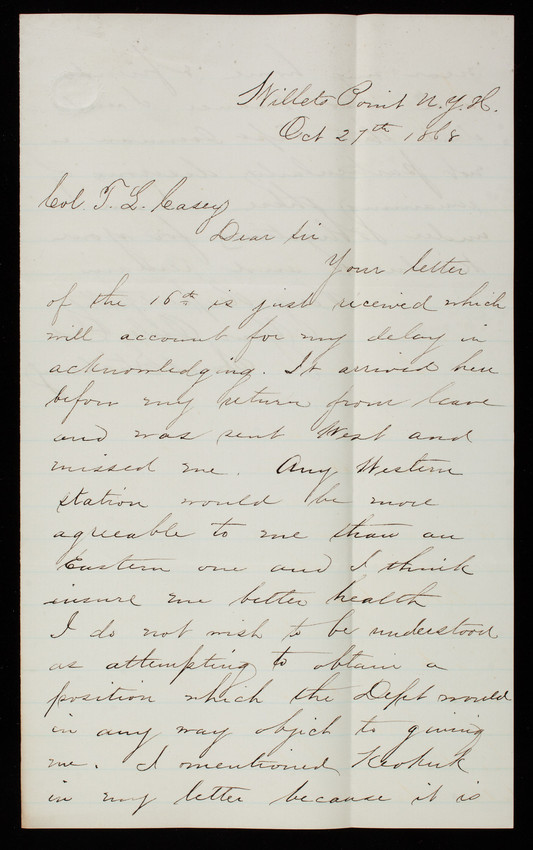 Willets Point N.Y.H.
Oct 27th 1868
Col T. L. Casey
Dear Sir
Your letter
of the 16th is just received which
will account for my delay in
acknowledging. It arrived here
before my return from leave
and was sent West and
missed me. Any Western
station would be more
agreeable to me than an
Eastern one and I think
insure me better health
I do not wish to be understood
as attempting to obtain a
position which the Dept would
in any way object to giving
me. I mentioned Keokuk
in my letter because it is